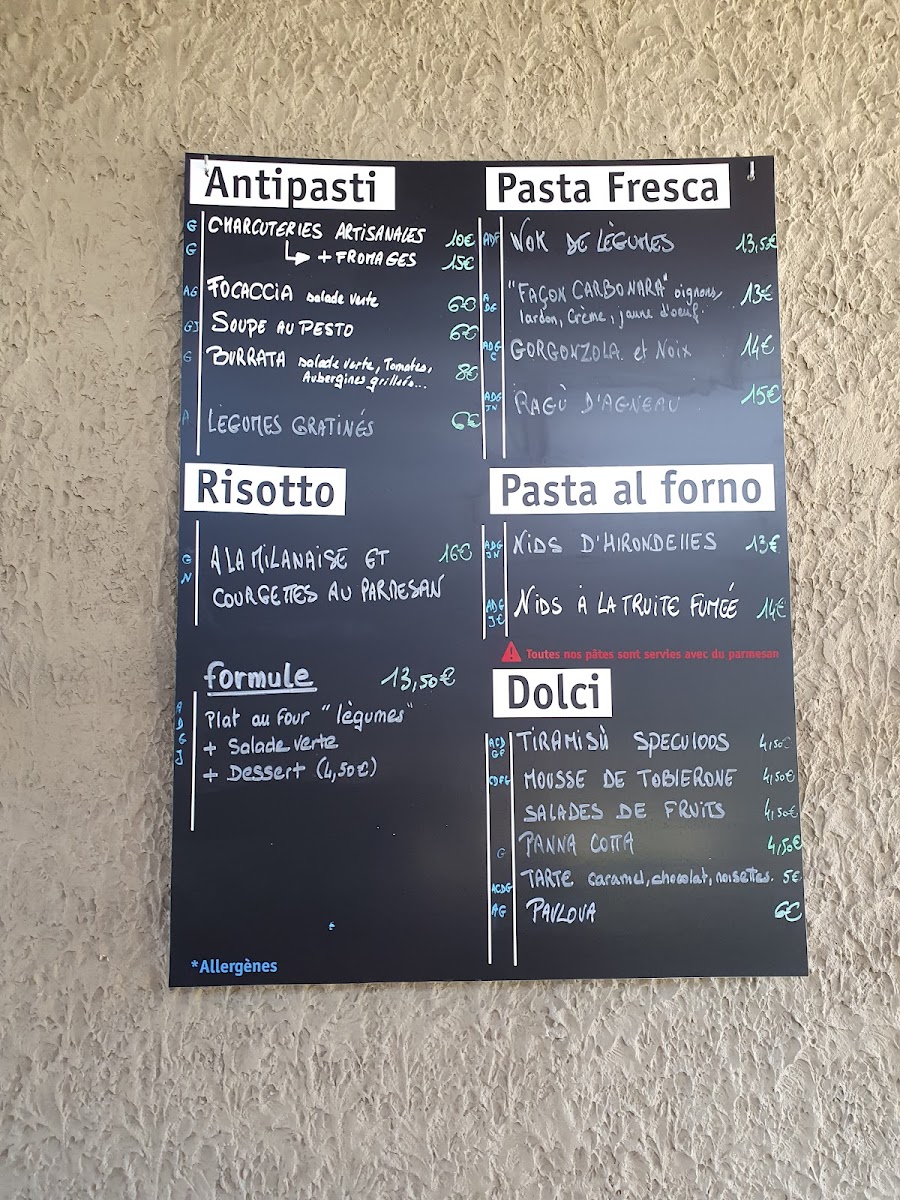 Antipasti
G CHARCUTERIES ARTISANALES 10€
G + FROMAGES 15€
AG FOCACCIA salade verte 6€
GJ SOUPE AU PESTO 6€
G BURRATA salade verte, Tomates, 8€
Aubergines grillées...
A LÉGUMES GRATINÉS 6€
Risotto
G A LA MILANAISE ET 16€
N COURGETTES AU PARMESAN
formule 13,50€
A
D
G
J
Plat au four "légumes"
+ Salade verte
+ Dessert (4,50€)
*Allergènes
Pasta Fresca
ADF WOK DE LÈGUMES 13,50€
A "FAÇON CARBONARA" oignons, 13€
DG lardon, Crème, jaune d'oeuf.
ADG GORGONZOLA et Noix 14€
C
ADG RAGÙ D'AGNEAU 15€
JN
Pasta al forno
ADG NIDS D'HIRONDELLES 13€
JN
ADG NIDS À LA TRUITE FUMÉE 14€
JE
Toutes nos pâtes sont servies avec du parmesan
Dolci
ACD TIRAMISÙ SPECULOOS 4,50€
GF
CDFG MOUSSE DE TOBLERONE 4,50€
SALADES DE FRUITS 4,50€
G PANNA COTTA 4,50€
ACDG TARTE caramel, chocolat, noisettes. 5€
AG PAVLOVA 6€